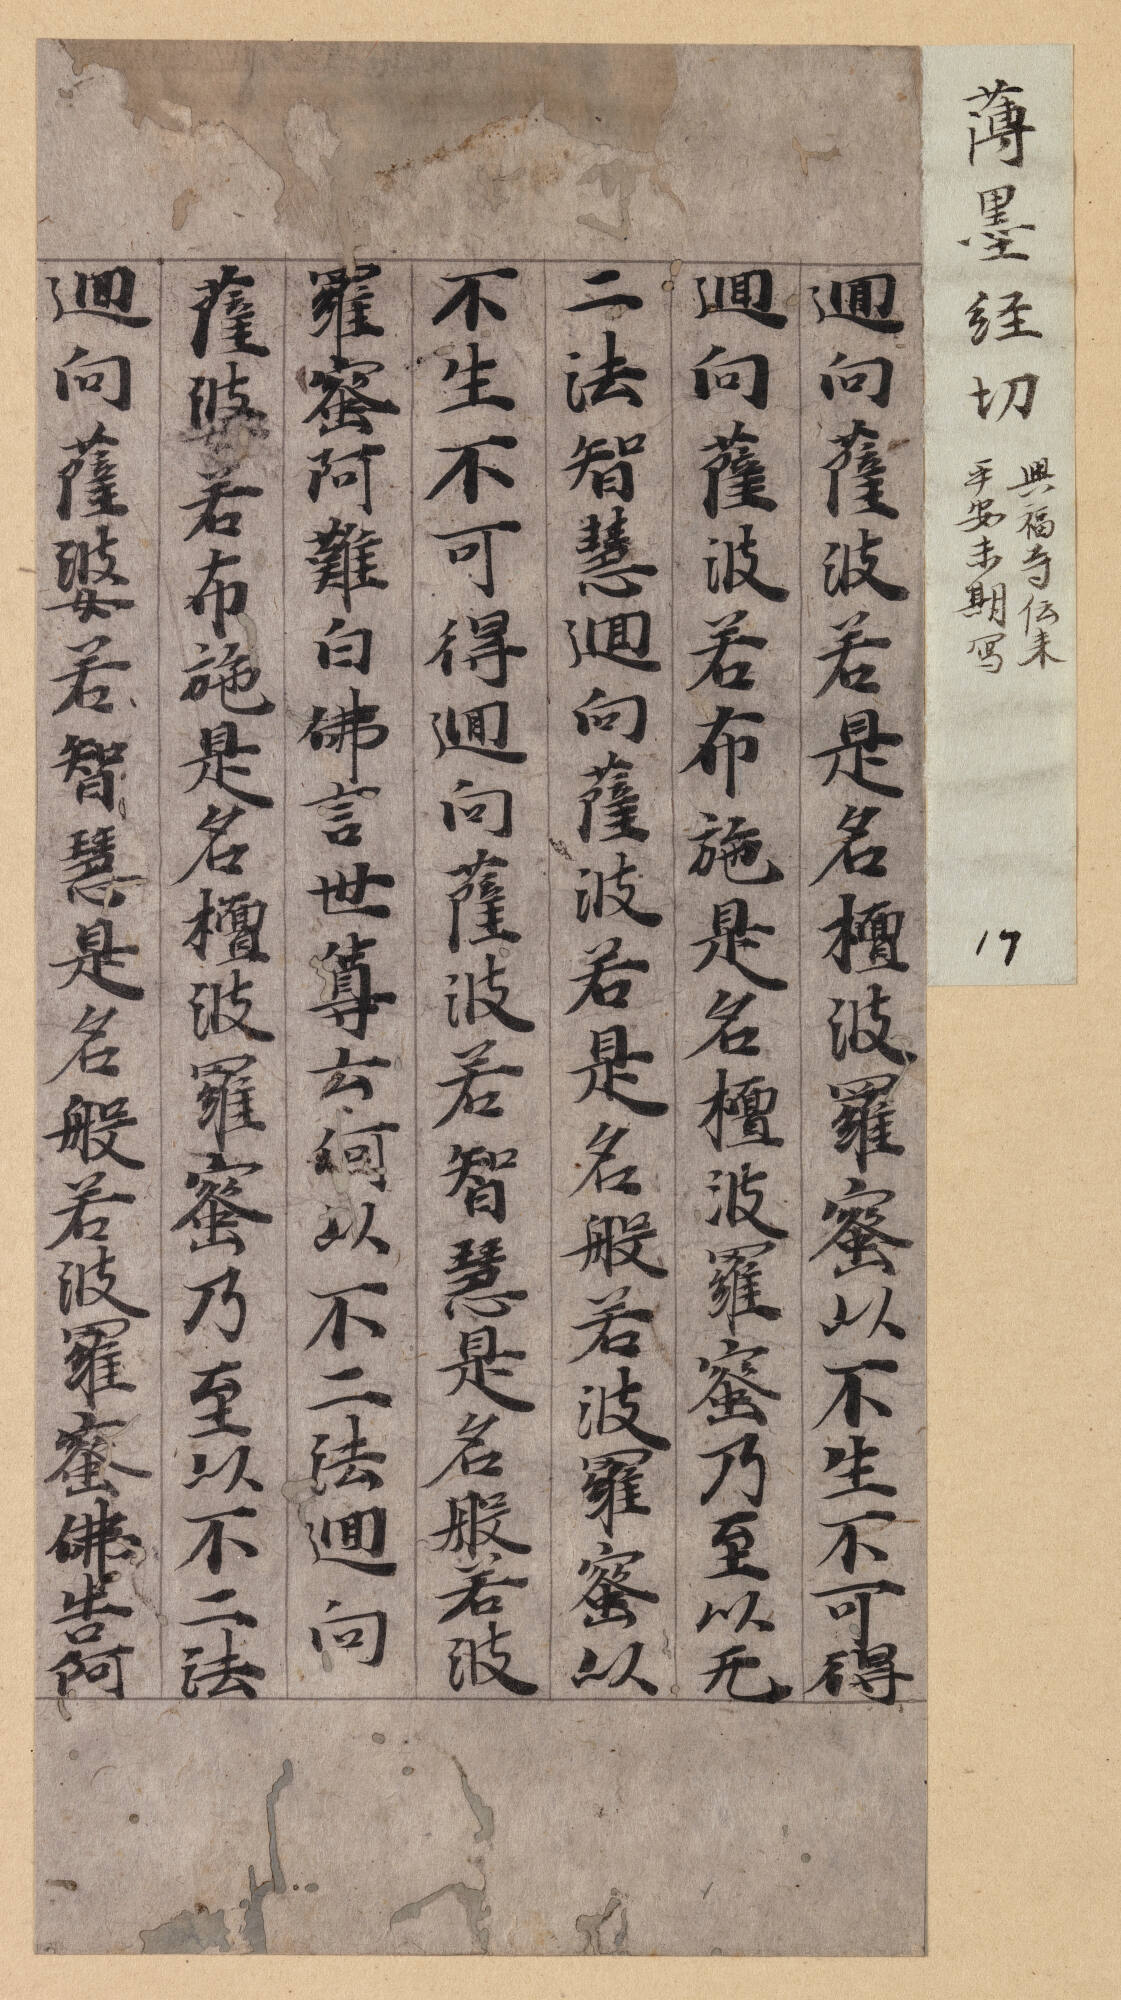 薄墨経切
興福寺伝来
平安末期写
17
迴向薩波若是名檀波羅蜜以不生不可得
迴向薩波若布施是名檀波羅蜜乃至以无
二法智慧迴向薩波若是名般若波羅蜜以
不生不可得迴向薩波若智慧是名般若波
羅蜜阿難白佛言世尊云何以不二法迴向
薩婆若布施是名檀波羅蜜乃至以不二法
迴向薩婆若智慧是名般若波羅蜜佛告阿